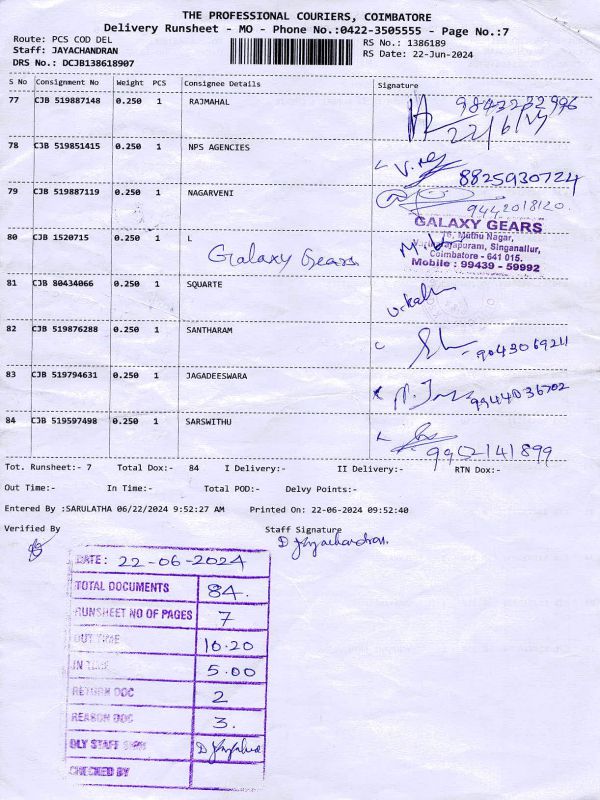 THE PROFESSIONAL COURIERS, COIMBATORE
Delivery Runsheet - MO - Phone No.:0422-3505555 - Page No.:7
Route: PCS COD DEL
Staff: JAYACHANDRAN
DRS No.: DCJB138618907
RS No.: 1386189
RS Date: 22-Jun-2024
S No Consignment No Weight PCS Consignee Details Signature
77 CJB 519887148 0.250 1 RAJMAHAL
22/6/24
78 CJB 519851415 0.250 1 NPS AGENCIES
8825930724
79 CJB 519887119 0.250 1 NAGARVENI
9442018120
80 CJB 1520715 0.250 1 L
Galaxy Gears
GALAXY GEARS
Muthu Nagar,
Singanallur,
Coimbatore - 641 015.
Mobile : 99439 - 59992
81 CJB 80434066 0.250 1 SQUARTE
82 CJB 519876288 0.250 1 SANTHARAM
83 CJB 519794631 0.250 1 JAGADEESWARA
9944036702
84 CJB 519597498 0.250 1 SARSWITHU
Tot. Runsheet:- 7 Total Dox:- 84 I Delivery:- II Delivery:- RTN Dox:-
Out Time:- In Time:- Total POD:- Delvy Points:-
Entered By :SARULATHA 06/22/2024 9:52:27 AM Printed On: 22-06-2024 09:52:40
Verified By Staff Signature
D Jayachandran.
DATE: 22-06-2024
TOTAL DOCUMENTS 84.
RUNSHEET NO OF PAGES 7
OUT TIME 10.20
IN TIME 5.00
RETURN DOC 2
REASON DOC 3.
DLY STAFF SIGN
CHECKED BY